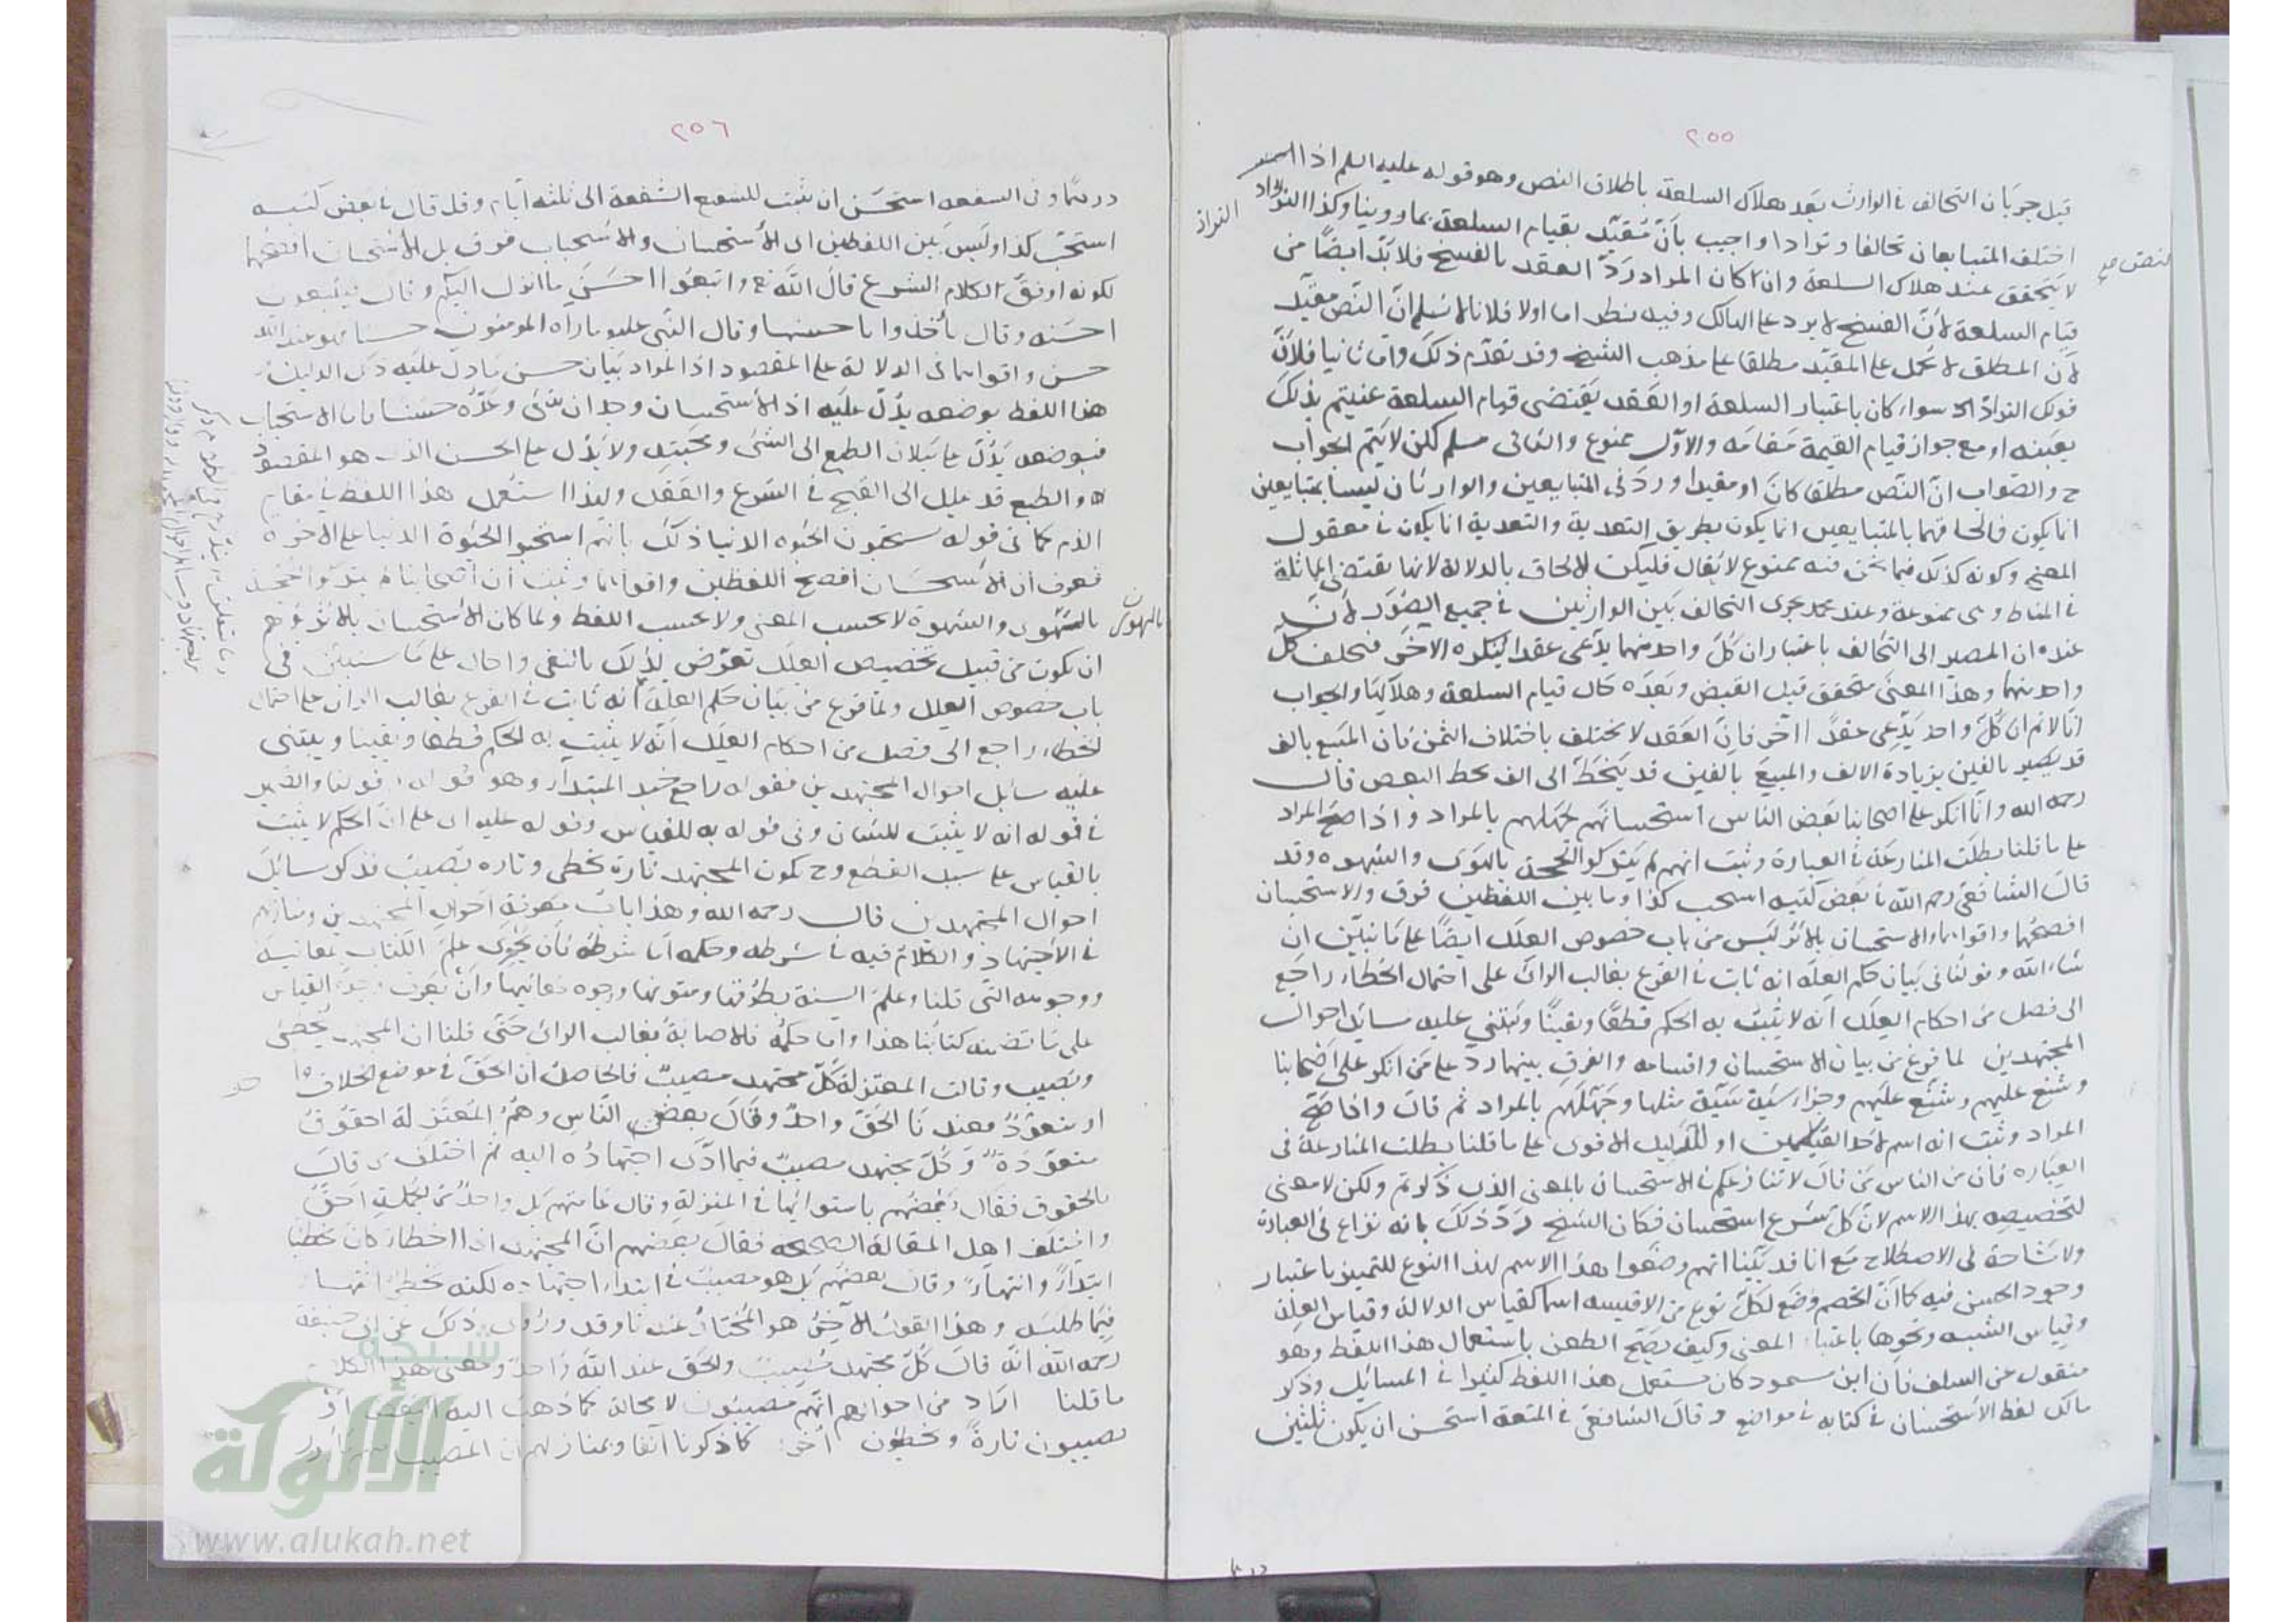 ٢٥٥
قيل جريان التحالف في الوارث بعد هلاك السلعة باطلاق النص وهو قوله عليه السلم اذا
اختلف المتبايعان تحالفا وترادا واجيب بأنّ مقيّد بقيام السلعة بما روينا وكذا التراد
لا يتحقق عند هلاك السلعة وان كان المراد ردّ العقد بالفسخ فلا بدّ ايضًا من
قيام السلعة لأنّ الفسخ لا يرد على الهالك وفيه نظر اما اولا فلانا لا نسلم انّ النص مقيّد
لأن المطلق لا يحمل على المقيّد مطلقا على مذهب الشيخ وقد تقدّم ذلك وامّا ثانيا فلأنّ
قولك التراد سواء كان باعتبار السلعة او العقد يقتضي قيام السلعة بذلك
بعينه او مع جواز قيام القيمة مقامه والاوّل ممنوع والثاني مسلم لكن لا يتم الجواب
ح والصّواب انّ النّص مطلقا كان او مقيدا ورد في المتبايعين والوارثان ليسا بمتبايعين
انما يكون فالحاقهما بالمتبايعين انما يكون بطريق التعدية والتعدية انما يكون في معقول
المعنى وكونه كذلك فيما نحن فيه ممنوع لا يقال فليكن الالحاق بالدلالة لانها تقتضي المماثلة
في المناط وهى ممنوعة وعند محمد يجرى التحالف بين الوارثين في جميع الصّور لأنّ
عنده ان المصير الى التحالف باعتبار ان كلّ واحد منهما يدّعى عقدا ينكره الآخر فيحلف كلّ
واحد منهما وهذا المعنى متحقق قبل القبض وبعده حال قيام السلعة وهلاكها والجواب
انّا لا نم ان كلّ واحد يدّعى عقدًا آخر فانّ العقد لا يختلف باختلاف الثمن فان المبيع بالف
قد يصير بالفين بزيادة الالف والمبيع بالفين قد ينحطّ الى الف بحط البعض قال
رحمه الله وانّما انكر على اصحابنا بعض الناس استحسانهم لجهلهم بالمراد واذا صحّ المراد
على ما قلنا بطلت المنازعة في العبارة وثبت انهم لم يتركوا الحجة بالهوى والشهوة وقد
قال الشافعى رحمه الله في بعض كتبه استحب كذا وما بين اللفظين فرق والاستحسان
افصحهما واقواهما والاستحسان بالاثر ليس من باب خصوص العلل ايضًا على ما نبيّن ان
شاء الله وقولنا في بيان حكم العلة انه ثابت في الفرع بغالب الرائ على احتمال الخطاء راجع
الى فصل من احكام العلل انّه لا يثبت به الحكم قطعًا ويقينًا ويبتنى عليه مسائل احوال
المجتهدين لما فرغ من بيان الاستحسان واقسامه والفرق بينهما ردّ على من انكر على اصحابنا
وشنع عليهم وشنّع عليهم وجزاء سيّئة سيّئة مثلها وجهّلهم بالمراد ثم قال واذا صحّ
المراد وثبت انه اسم لاحد القياسين او للدليل الاقوى على ما قلنا بطلت المنازعة في
العبارة فان من الناس من قال لا ننازعكم في الاستحسان بالمعنى الذى ذكرتم ولكن لا معنى
لتخصيصه بهذا الاسم لانّ كلّ شرع استحسان فكان الشيخ ردّ ذلك بانه نزاع في العبارة
ولا مشاحة في الاصطلاح مع انا قد بيّنا انهم وضعوا هذا الاسم لهذا النوع للتمييز باعتبار
وجود الحسن فيه كما انّ الخصم وضع لكلّ نوع من الاقيسه اسما كقياس الدلالة وقياس العلة
وقياس الشبه ونحوها باعتبار المعنى وكيف يصحّ الطعن باستعمال هذا اللفظ وهو
منقول عن السلف فان ابن مسعود كان يستعمل هذا اللفظ كثيرا في المسائل وذكر
مالك لفظ الاستحسان في كتابه في مواضع وقال الشافعى في المتعة استحسن ان يكون ثلثين
التراد
٢٥٦
درهمًا وفى الشفعه استحسن ان يثبت للشفيع الشفعة الى ثلثه ايّام وقد قال في بعض كتبه
استحبّ كذا وليس بين اللفظين اى الأستحسان والاستحباب فرق بل الأستحسان افصحهما
لكونه اوفق لكلام الشرع قال الله تع واتبعوا احسن ما انزل اليكم وقال فيتبعون
احسنه وقال يأخذوا باحسنها وقال النّبى عليه ما رآه المؤمنون حسنا فهو عند الله
حسن واقواهما في الدلالة على المقصود اذ المراد بيان حسن ما دلّ عليه ذلك الدليل
هذا اللفظ بوضعه يدلّ عليه اذ الأستحسان وجدان شئ وعدّه حسنا واما الاستحباب
فبوضعه يدلّ على ميلان الطبع الى الشئ ومحبّته ولا يدلّ على الحسن الذى هو المقصود
والطبع قد يميل الى القبح في الشرع والعقل ولهذا استعمل هذا اللفظ في مقام
الذم كما في قوله يستحبون الحيوة الدنيا ذلك بانهم استحبوا الحيوة الدنيا على الآخرة
فعرف ان الأستحسان افصح اللفظين واقواهما وثبت ان اصحابنا لم يتركوا الحجة
بالهوى والشهوة لا بحسب المعنى ولا بحسب اللفظ ولما كان الأستحسان بالاثر يوهم
ان يكون من قبيل تخصيص العلل تعرّض لذلك بالنفى واحال على ما سنبيّن في
باب خصوص العلل ولمّا فرغ من بيان حكم العلة انه ثابت في الفرع بغالب الرائ على احتمال
لخطاء راجع الى فصل من احكام العلل انّه لا يثبت به الحكم قطعا ويقينا ويبتنى
عليه مسائل احوال المجتهدين فقوله راجع خبر المبتداء وهو قوله وقولنا والضمير
في قوله انه لا يثبت للشان وفى قوله به للقياس وقوله عليه اى على انّ الحكم لا يثبت
بالقياس على سبيل القطع وح يكون المجتهد تارة يخطئ وتاره يصيب فذكر مسائل
احوال المجتهدين قال رحمه الله وهذا باب معرفة احوال المجتهدين ومنازلهم
في الأجتهاد والكلام فيه في شرطه وحكمه امّا شرطه فان يحوى علم الكتاب بمعانيه
ووجوهه التى قلنا وعلم السنة بطرقها ومتونها ووجوه معانيها وان يعرف وجوه القياس
على ما تضمنه كتابنا هذا وامّا حكمه فالاصابة بغالب الرائ حتّى قلنا ان المجتهد يخطئ
ويصيب وقالت المعتزلة كلّ مجتهد مصيب فالحاصل ان الحقّ في موضع الخلاف واحد
او متعدّد فعندنا الحقّ واحدٌ وقال بعض النّاس وهم المعتزلة الحقوق
متعدّدة وكلّ مجتهد مصيبٌ فيما ادّى اجتهاده اليه ثم اختلف من قال
بالحقوق فقال بعضهم باستوائها في المنزلة وقال عامتهم بل واحدٌ من الجملة احقّ
واختلف اهل المقالة الصحيحه فقال بعضهم انّ المجتهد اذا اخطاء كان مخطئا
ابتداءً وانتهاءً وقال بعضهم بل هو مصيبٌ في ابتداء اجتهاده لكنه مخطئ انتهاءً
فيما طلبه وهذا القول الآخر هو المختار عندنا وقد روى ذلك عن ابى حنيفة
رحمه الله انّه قال كلّ مجتهد مصيب والحق عند الله واحد ومعنى هذا الكلام
ما قلنا اراد من احوالهم انّهم مصيبون لا محالة كما ذهب اليه البعض او
يصيبون تارةً ويخطؤن اخرى كما ذكرنا آنفا وبمنازلهم ان المصيب
بالهوى
شبكة
الألوكة
www.alukah.net